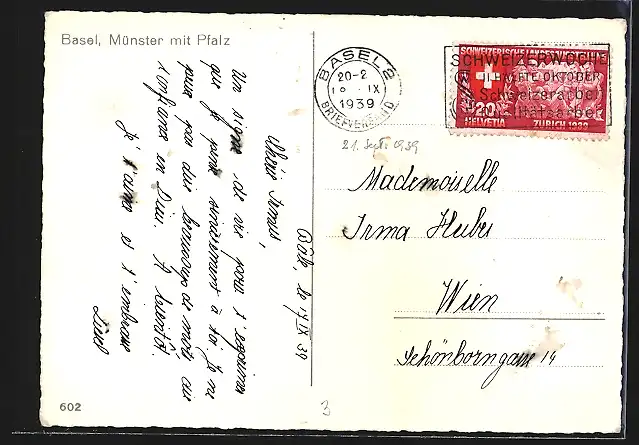 Basel, Münster mit Pfalz
Bâle, le 17 IX 39
Chérie Irma,
Un signe de vie pour t'exprimer
que je pense sincèrement à toi. Je ne
peux pas dire beaucoup de mots, aie
confiance en Dieu. A bientôt.
Je t'aime et t'embrasse
Liesel
602
BASEL 2
20-2
IX
1939
BRIEFVERSAND
SCHWEIZERWOCHE
HÄLFTE OKTOBER
Schweizerarbeit
Qualitätsarbeit
SCHWEIZERISCHE LANDESAUSSTELLUNG
20
HELVETIA
ZÜRICH 1939
21. Sept. 1939
Mademoiselle
Irma Huber
Wien
Schönborngasse 14
3